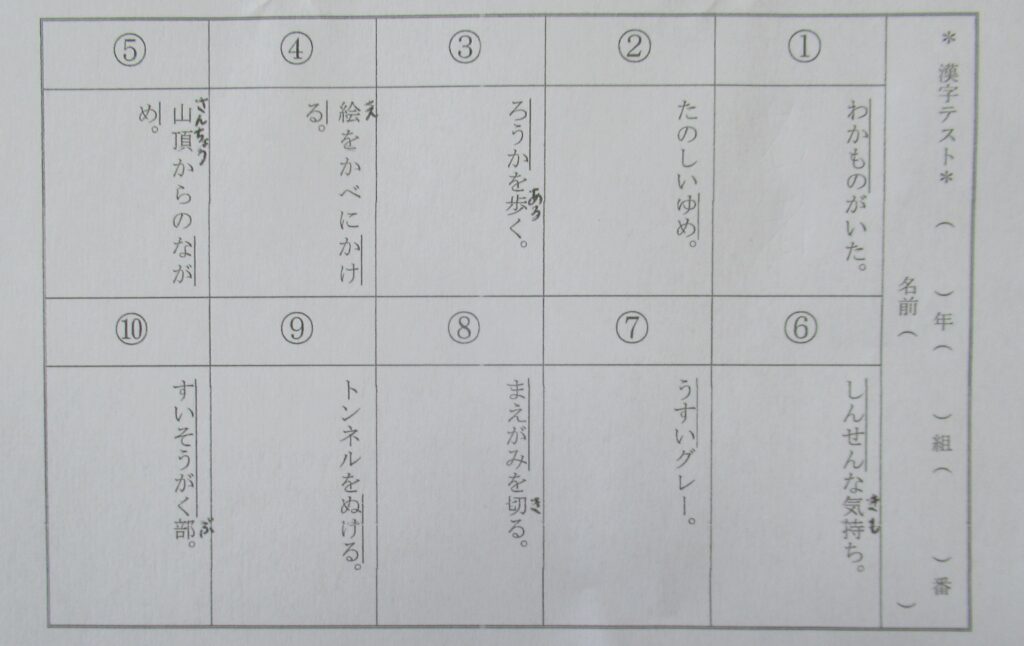 ＊漢字テスト＊（　　）年（　　）組（　　）番
名前（　　）
①
わかものがいた。
②
たのしいゆめ。
③
ろうかを歩く。
ある
④
絵をかべにかけ
え
る。
⑤
山頂からのなが
さんちょう
め。
⑥
しんせんな気持ち。
きも
⑦
うすいグレー。
⑧
まえがみを切る。
き
⑨
トンネルをぬける。
⑩
すいそうがく部。
ぶ